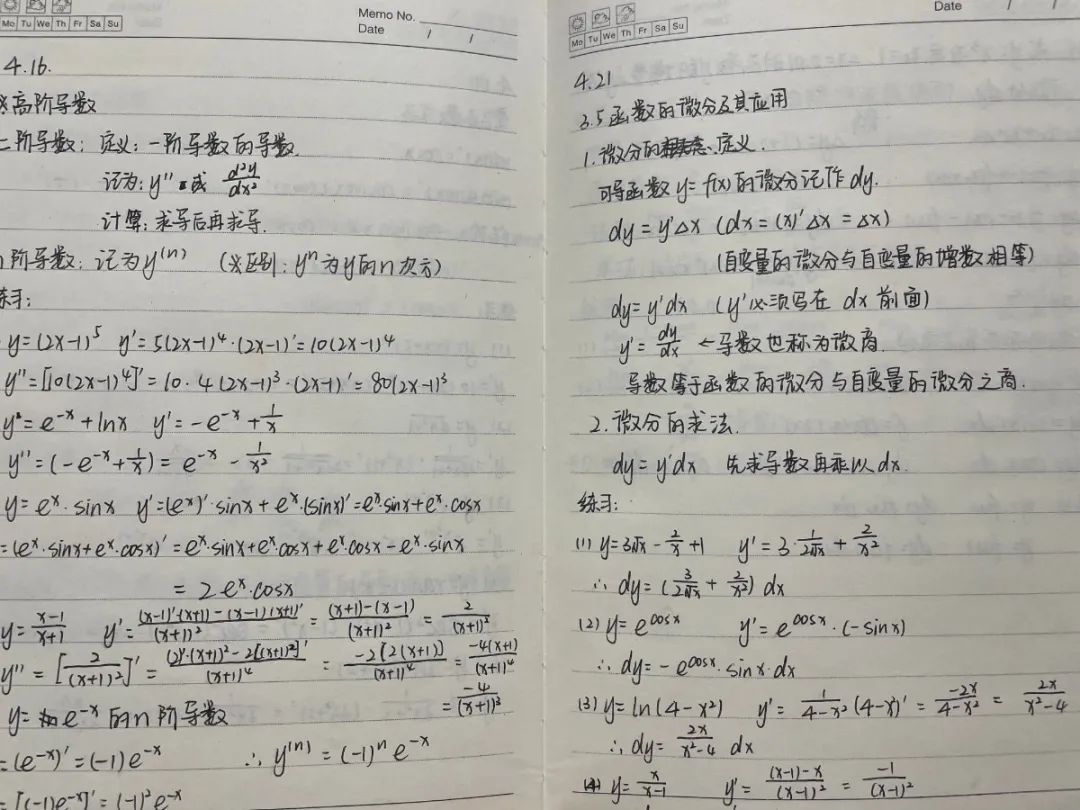 Mo Tu We Th Fr Sa Su
Memo No.
Date / /
4.16.
※高阶导数
二阶导数: 定义: 一阶导数的导数.
记为: y'' 或 d²y/dx²
计算: 求导后再求导.
阶导数: 记为y⁽ⁿ⁾ (※区别: yⁿ为y的n次方)
练习:
y=(2x-1)⁵ y'=5(2x-1)⁴·(2x-1)'=10(2x-1)⁴
y''=[10(2x-1)⁴]'=10·4(2x-1)³·(2x-1)'=80(2x-1)³
y=e⁻ˣ+lnx y'=-e⁻ˣ+1/x
y''=(-e⁻ˣ+1/x)=e⁻ˣ-1/x²
y=eˣ·sinx y'=(eˣ)'·sinx+eˣ·(sinx)'=eˣ·sinx+eˣ·cosx
=(eˣ·sinx+eˣ·cosx)'=eˣ·sinx+eˣ·cosx+eˣ·cosx-eˣ·sinx
=2eˣ·cosx
y=(x-1)/(x+1) y'=((x-1)'·(x+1)-(x-1)(x+1)')/(x+1)²=((x+1)-(x-1))/(x+1)²=2/(x+1)²
y''=[2/(x+1)²]'=((2)'·(x+1)²-2[(x+1)²]')/(x+1)⁴=-2[2(x+1)]/(x+1)⁴=-4(x+1)/(x+1)⁴
=-4/(x+1)³
y=e⁻ˣ的n阶导数
=(e⁻ˣ)'=(-1)e⁻ˣ ∴y⁽ⁿ⁾=(-1)ⁿe⁻ˣ
=[(-1)e⁻ˣ]'=(-1)²e⁻ˣ
Mo Tu We Th Fr Sa Su
Date / /
4.21
3.5函数的微分及其应用
1.微分的概念、定义.
可导函数y=f(x)的微分记作dy.
dy=y'Δx (dx=(x)'Δx=Δx)
(自变量的微分与自变量的增数相等)
dy=y'dx (y'必须写在dx前面)
y'=dy/dx ←导数也称为微商.
导数等于函数的微分与自变量的微分之商.
2.微分的求法.
dy=y'dx 先求导数再乘以dx.
练习:
(1) y=3√x-2/x+1 y'=3·1/(2√x)+2/x²
∴dy=(3/(2√x)+2/x²)dx
(2) y=e^cosx y'=e^cosx·(-sinx)
∴dy=-e^cosx·sinx·dx
(3) y=ln(4-x²) y'=1/(4-x²)(4-x²)'=-2x/(4-x²)=2x/(x²-4)
∴dy=2x/(x²-4) dx
(4) y=x/(x-1) y'=((x-1)-x)/(x-1)²=-1/(x-1)²